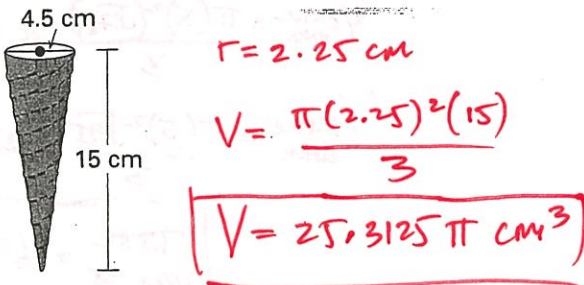 4.5 cm
15 cm
r = 2.25 cm
V = π(2.25)²(15)
3
V = 25.3125 π cm³